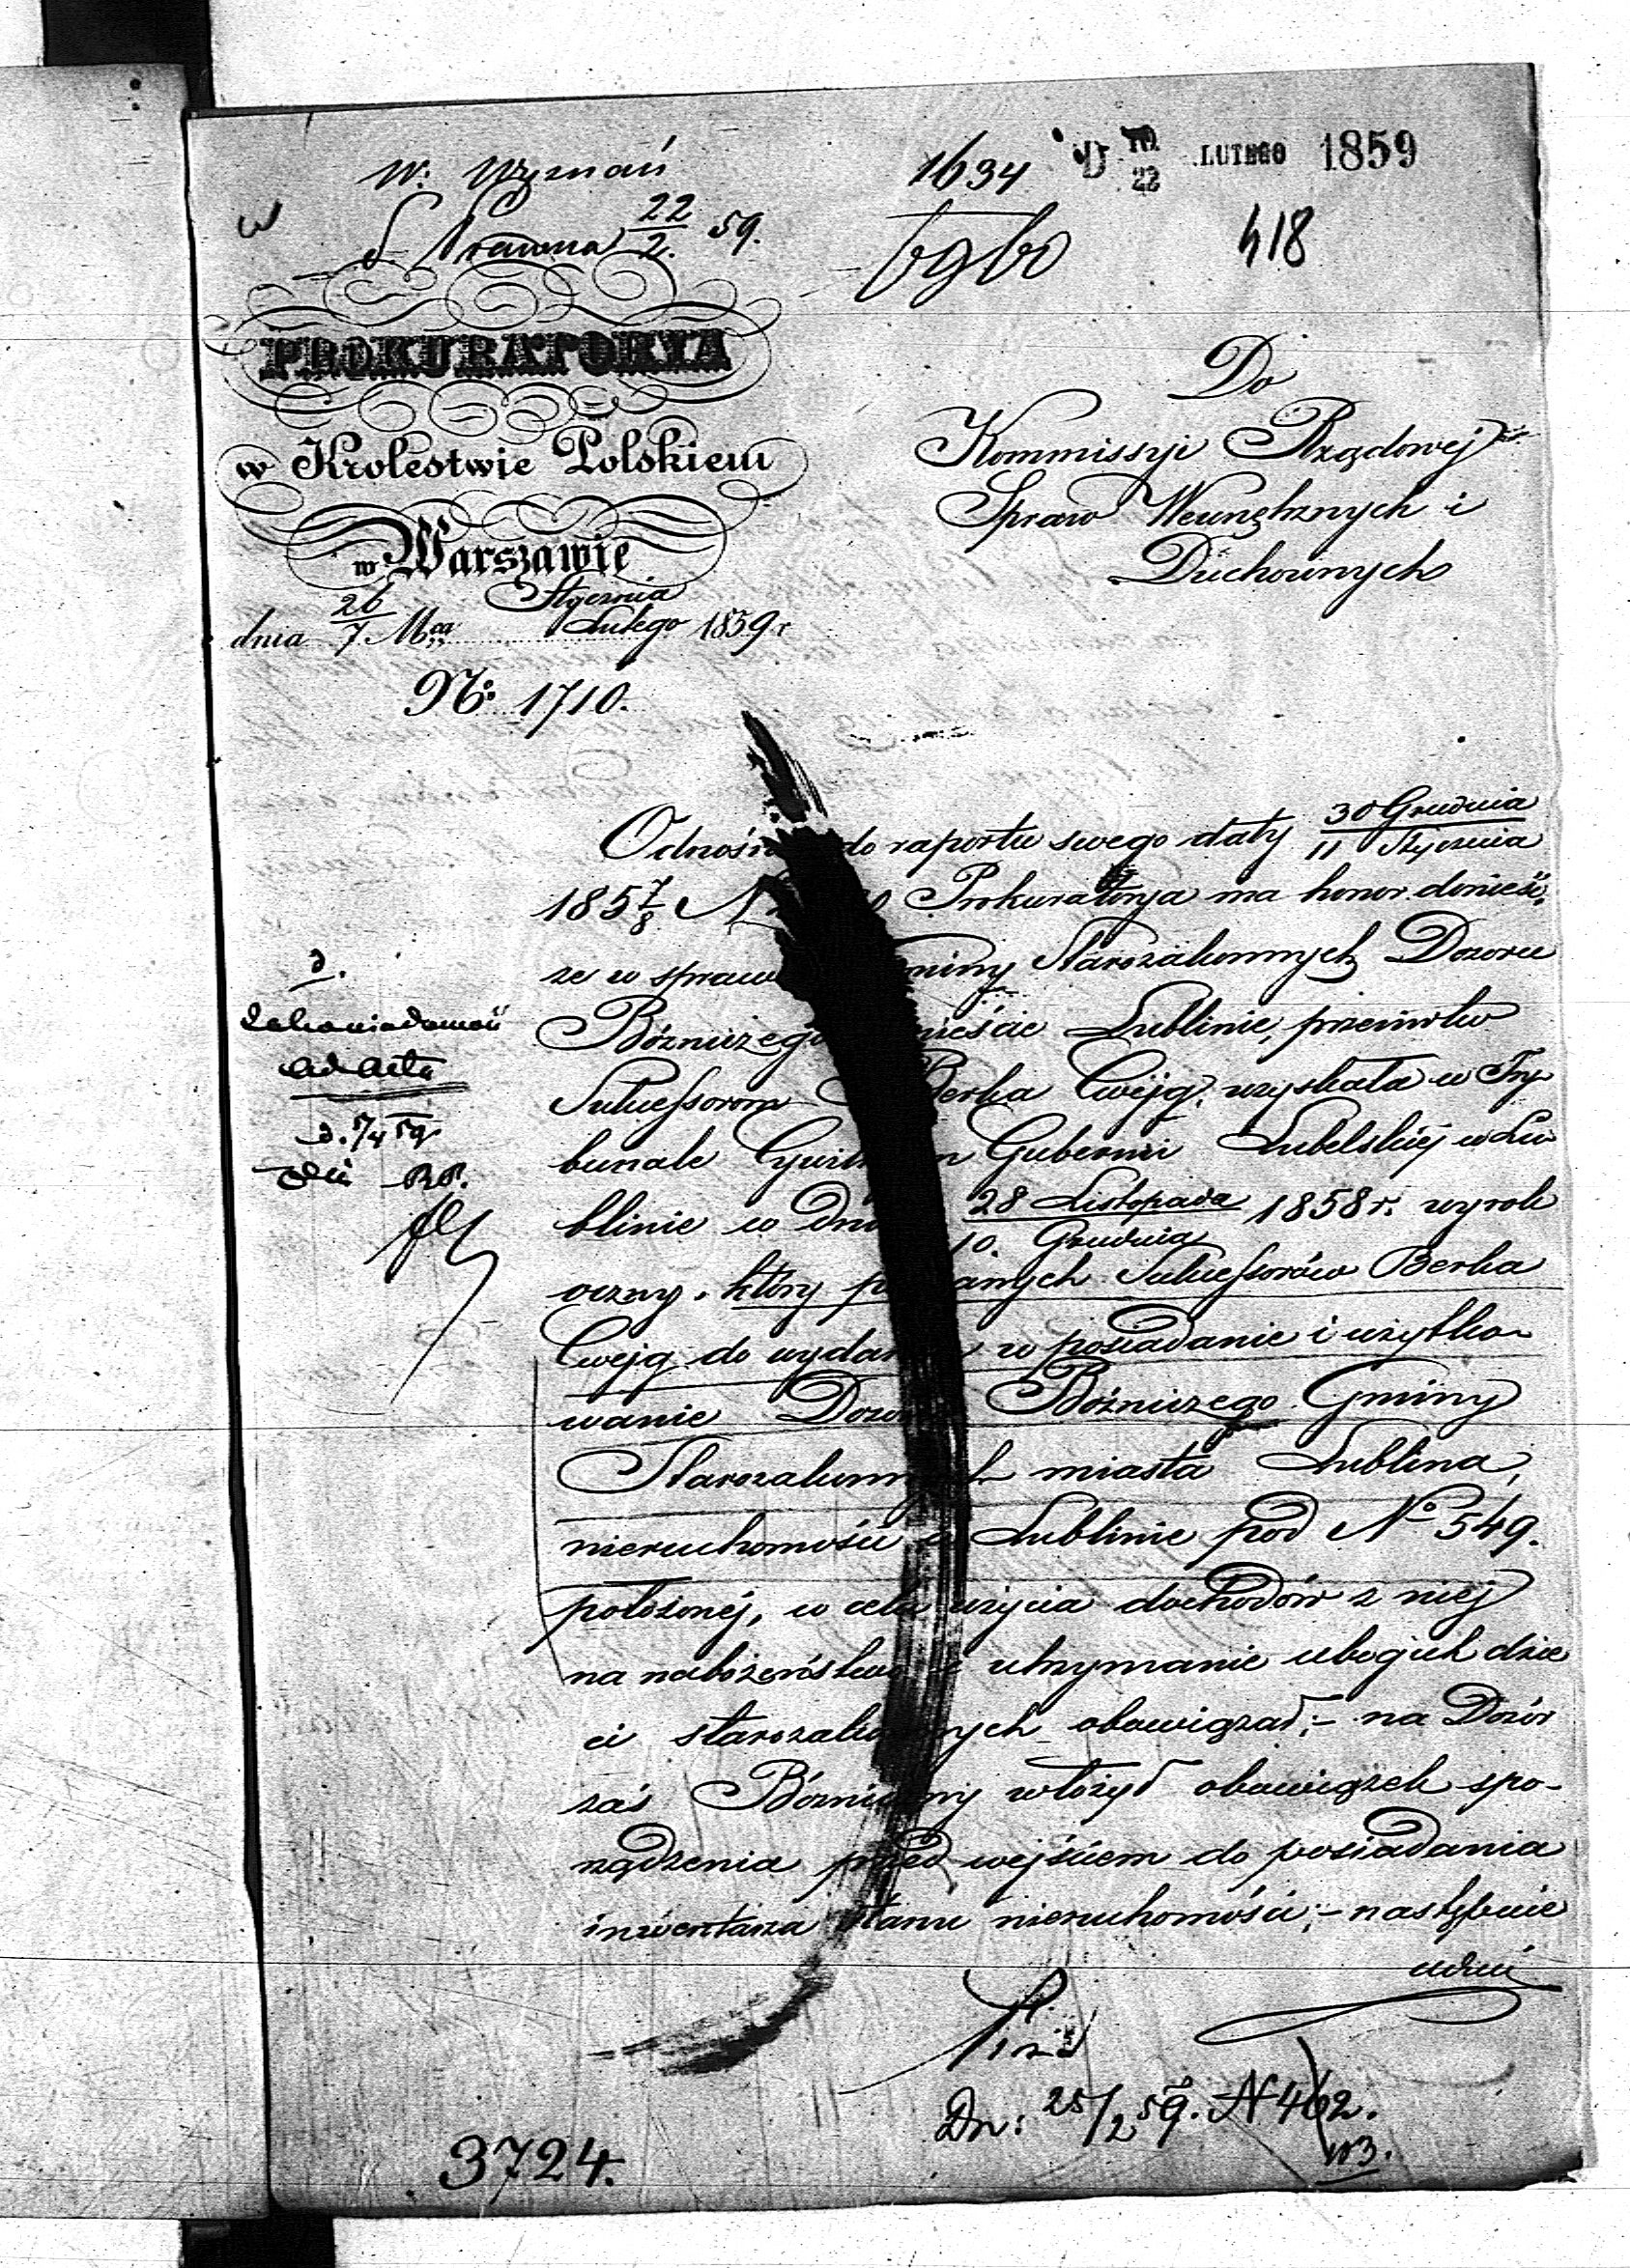 W. Wyznań
S. Prawna 22/2. 59.
1634
D 10/22 LUTEGO 1859
418
PROKURATORYA
w Krolestwie Polskiem
w Warszawie
dnia 26/7 Mca Stycznia/Lutego 1859 r
No 1710.
Do
Kommissyi Rządowej
Spraw Wewnętrznych i
Duchownych
Odnośn do raportu swego daty 30 Grudnia/11 Stycznia
1857/8 N Prokuratorya ma honor donieść,
że w spraw miny Starozakonnych Dozoru
Bóżniczego mieście Lublinie, przeciwko
Sukcessorom Berka Cwejg, uzyskała w Try
bunale Cywiln Gubernii Lubelskiéj w Lu
blinie w dniu 28 Listopada/10. Grudnia 1858 r. wyrok
oczny, który p anych Sukcessorów Berka
Cwejg do wydan w posiadanie i użytko-
wanie Dozor Bóżniczego Gminy
Starozakonnych miasta Lublina,
nieruchomości w Lublinie pod No 549.
położonéj, w celu użycia dochodów z niej
na nabożeństwo i utrzymanie ubogich dzie
ci starozakonnych obowiązał;- na Dozór
zaś Bóżniczny włożył obowiązek spo-
rządzenia przed wejściem do posiadania
inwentarza stanu nieruchomości;- nastepnie
3.
ad acta
Dn: 25/2 59. N 462.
W3.
3724.